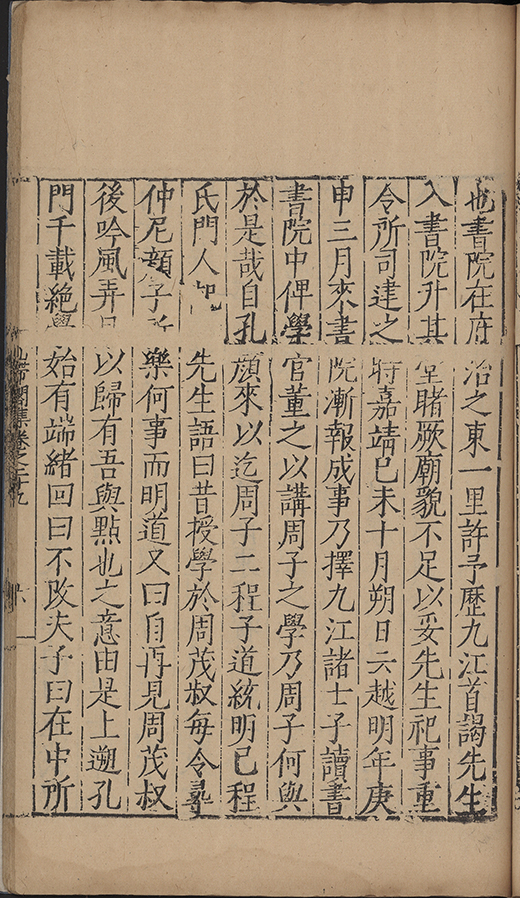 也書院在府治之東一里許予歷九江首謁先生
入書院升其堂睹厥廟貌不足以妥先生祀事重
令所司建之時嘉靖己未十月朔日云越明年庚
申三月來書院漸報成事乃擇九江諸士子讀書
書院中俾學官董之以講周子之學乃周子何與
於是哉自孔顔來以迄周子二程子道統明已程
氏門人 先生語曰昔授學於周茂叔每令尋
仲尼顔子所樂何事而明道又曰自再見周茂叔
後吟風弄月以歸有吾與點也之意由是上遡孔
門千載絶學始有端緒回曰不改夫子曰在中所
集卷之十九
六